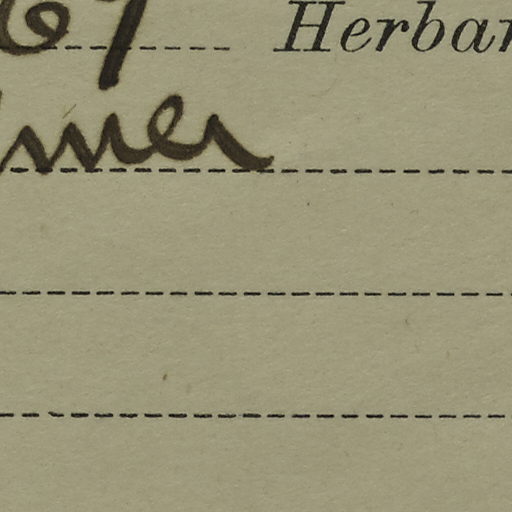 67 Herbar
mer